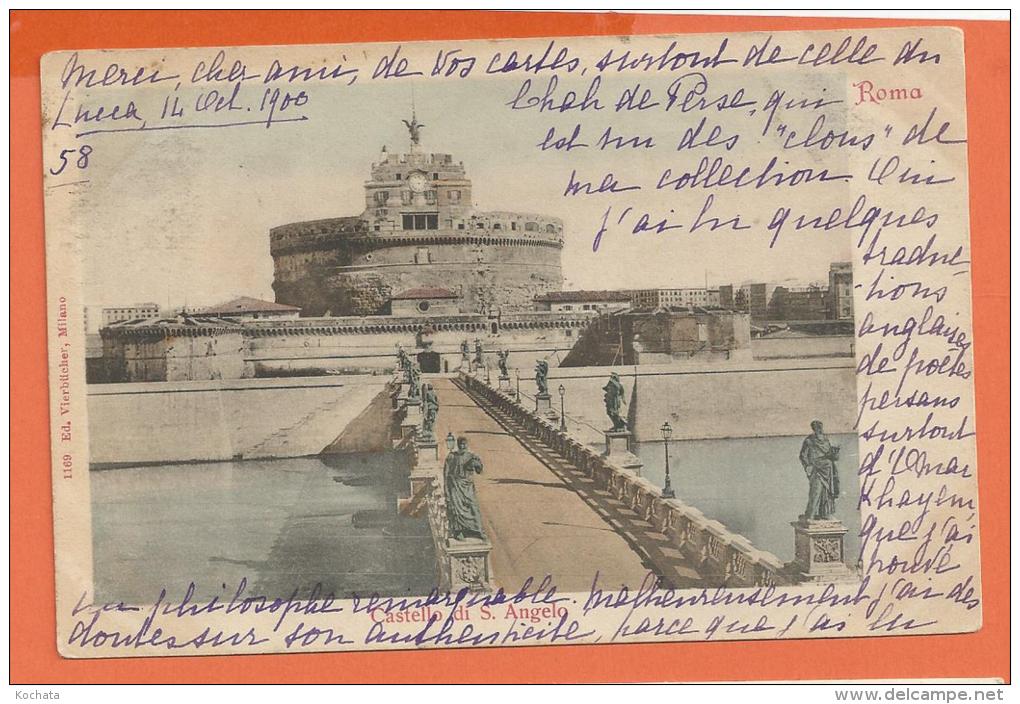 Merci, cher ami, de vos cartes, surtout de celle du
Lucca, 14 Oct. 1900
58
Chah de Perse, qui
est un des "clous" de
ma collection Oui
j'ai lu quelques
traduc-
tions
anglaises
de poëtes
persans
surtout
d'Omar
Khayem,
que j'ai
trouvé
un philosophe remarquable. Malheureusement j'ai des
doutes sur son authenticité, parce que j'ai lu
Roma
1169 Ed. Vierbücher, Milano
Castello di S. Angelo
Kochata
www.delcampe.net